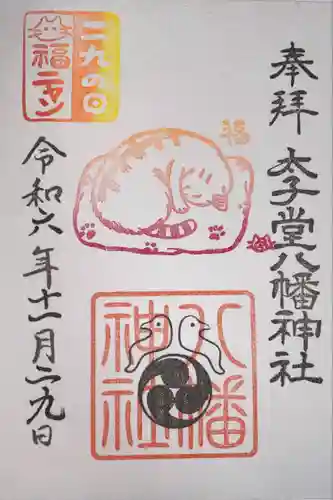 奉拝 太子堂八幡神社
福
二九の日
福ニャン
八幡
神社
令和六年十一月二九日